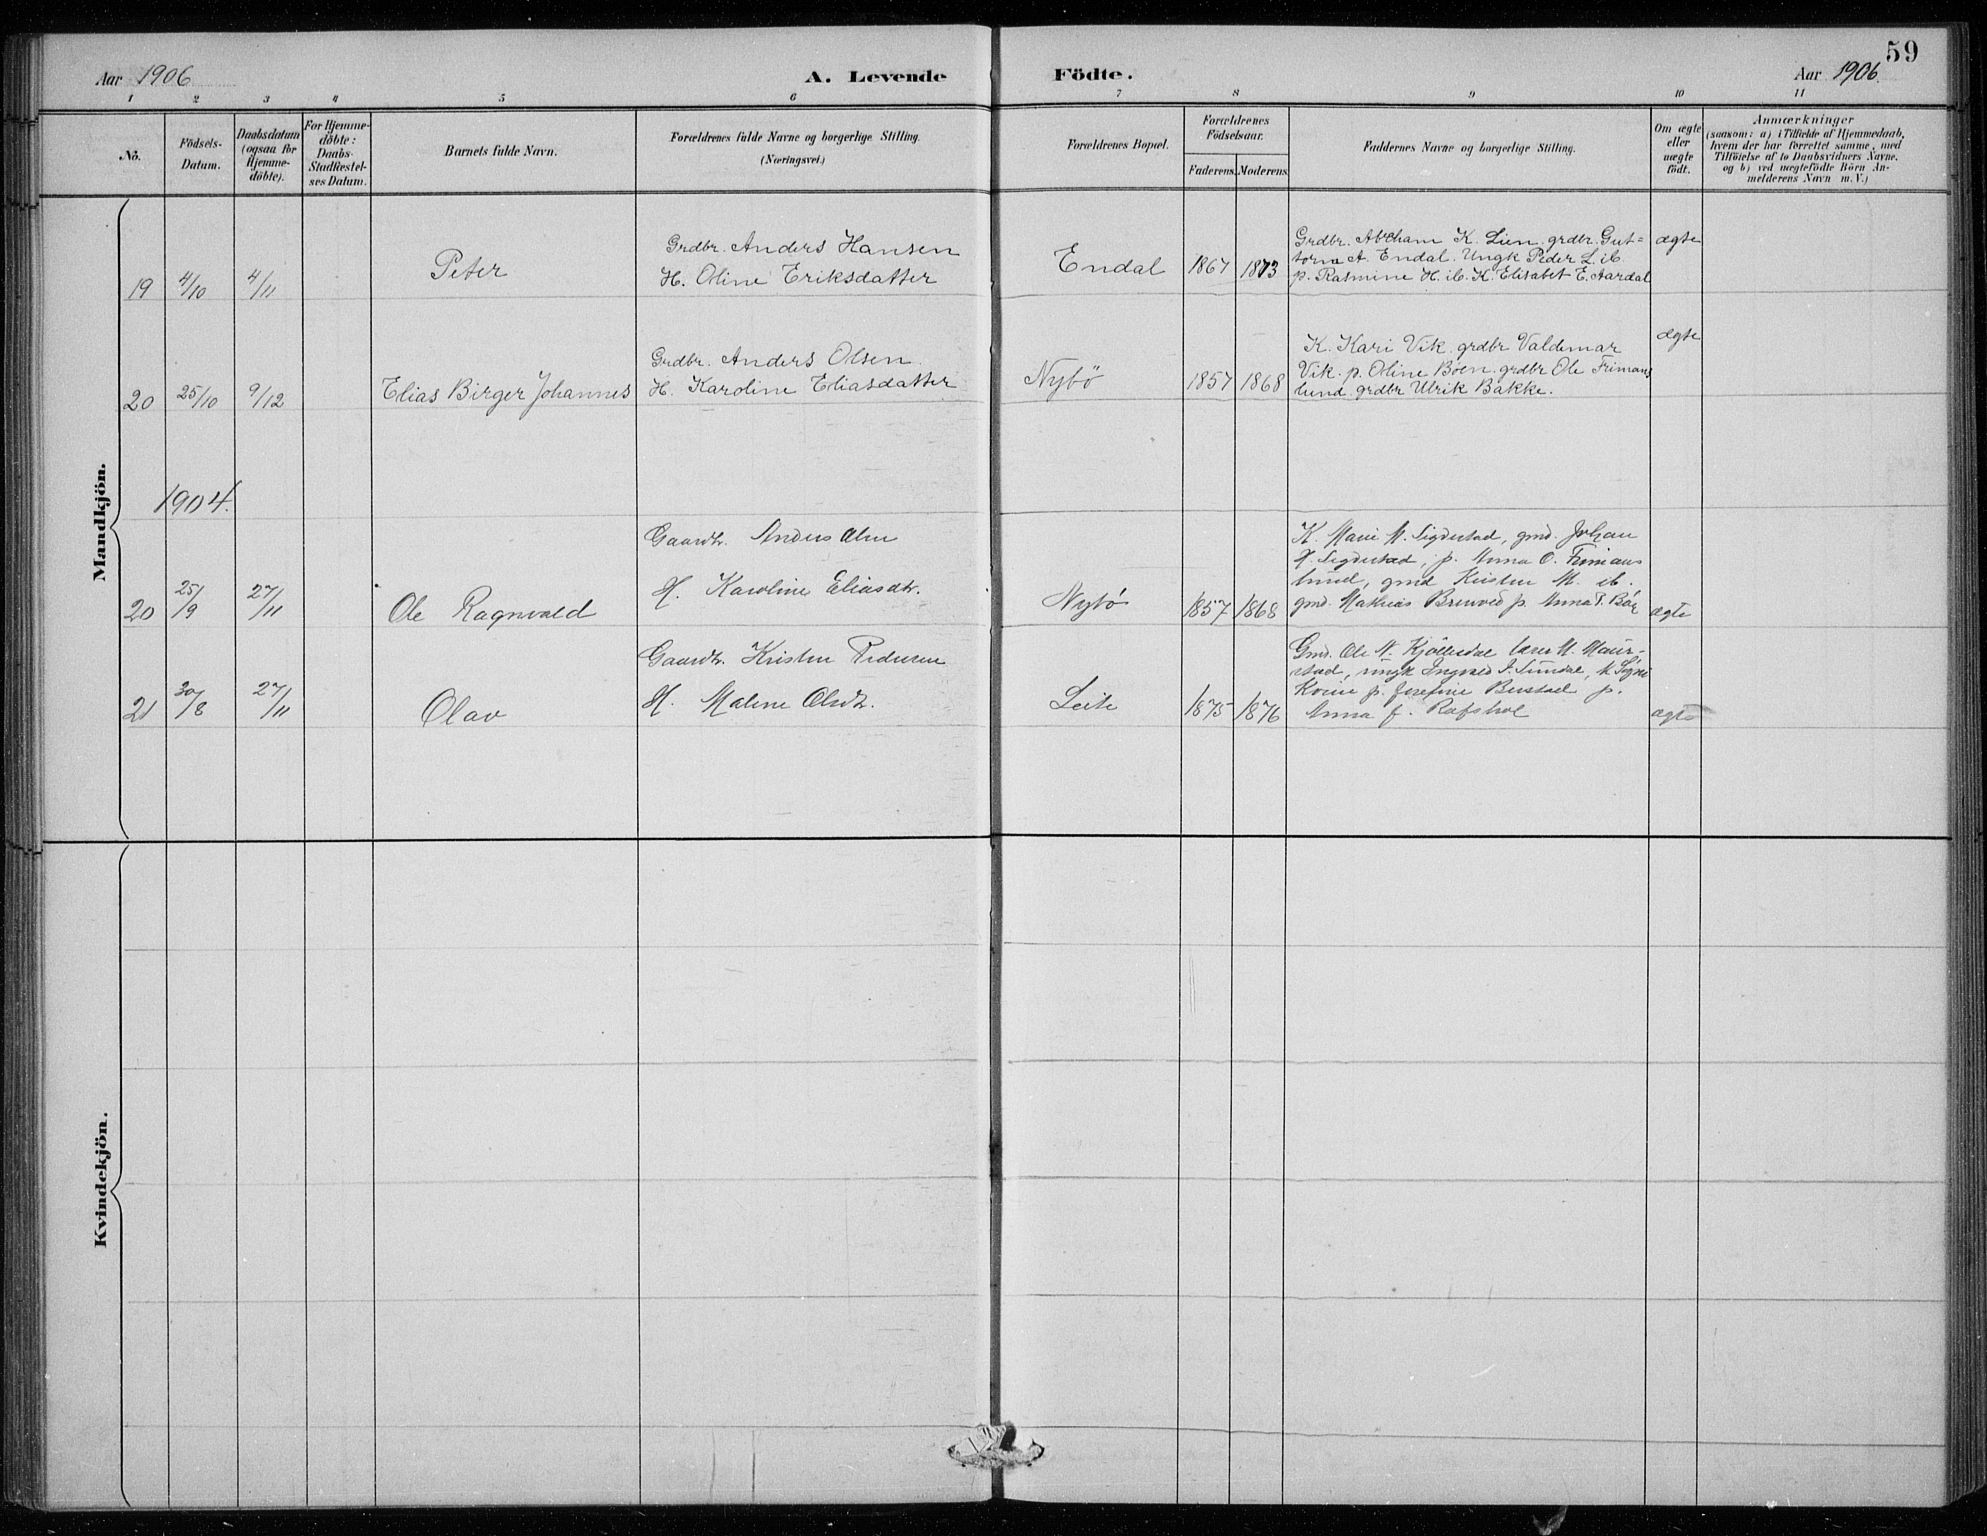 59
Aar 1906
A. Levende Födte.
Aar 1906.
1 2 3 4 5 6 7 8 9 10 11
No.
Födsels-
Datum.
Daabsdatum
(ogsaa for
Hjemme-
döbte).
For Hjemme-
döbte:
Daabs-
Stadfæstel-
ses Datum.
Barnets fulde Navn.
Forældrenes fulde Navne og borgerlige Stilling.
(Næringsvei.)
Forældrenes Bopæl.
Forældrenes
Födselsaar.
Faderens. Moderens.
Faddernes Navne og borgerlige Stilling.
Om ægte
eller
uægte
födt.
Anmærkninger
(saasom: a) i Tilfælde af Hjemmedaab,
hvem der har forrettet samme, med
Tilföielse af to Daabsvidners Navne.
og b) ved uægtefödte Börn An-
melderens Navn m. V.)
Mandkjön.
19 4/10 4/11
Peter
Grdbr. Anders Hansen
H. Oline Eriksdatter
Endal
1867 1873
Grdbr. Abraham K. Lien. grdbr. Gut-
torm A. Endal. Ungk Peder L. ib.
p. Rasmine H. ib. K. Elisabet E. Aardal
ægte
20 25/10 9/12
Elias Birger Johannes
Grdbr. Anders Olsen
H. Karoline Eliasdatter
Nybö
1857 1868
K. Kari Vik. grdbr Valdemar
Vik. p. Oline Böen. grdbr Ole Frimans
lund. grdbr Ulrik Bakke.
ægte
1904.
20 25/9 27/11
Ole Ragnvald
Gaardbr. Anders Olsn
H. Karoline Eliasdtr.
Nybö
1857 1868
K. Marie M. Sigdestad, gmd. Johan
H. Sigdestad, p. Anna O. Frimans
lund, gmd Kristen M. ib.
gmd. Mathias p. Anna T.
ægte
21 30/8 27/11
Olav
Gaardbr. Kristen Pedersen
H. Malene Olsdtr.
Leite
1875 1876
Gmd. Ole N. Kjöllesdal lærer M. Maur-
stad, ungk Ingvald J. Sundal, k Signe
p. Josefine p.
Anna J.
ægte
Kvindekjön.